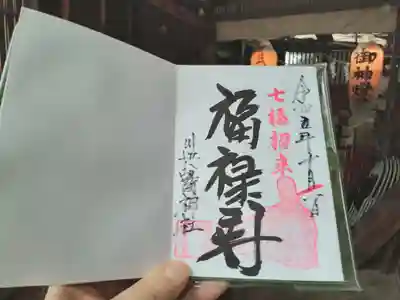 御神燈
令和五年十月一日
七福招来
福禄寿
神社